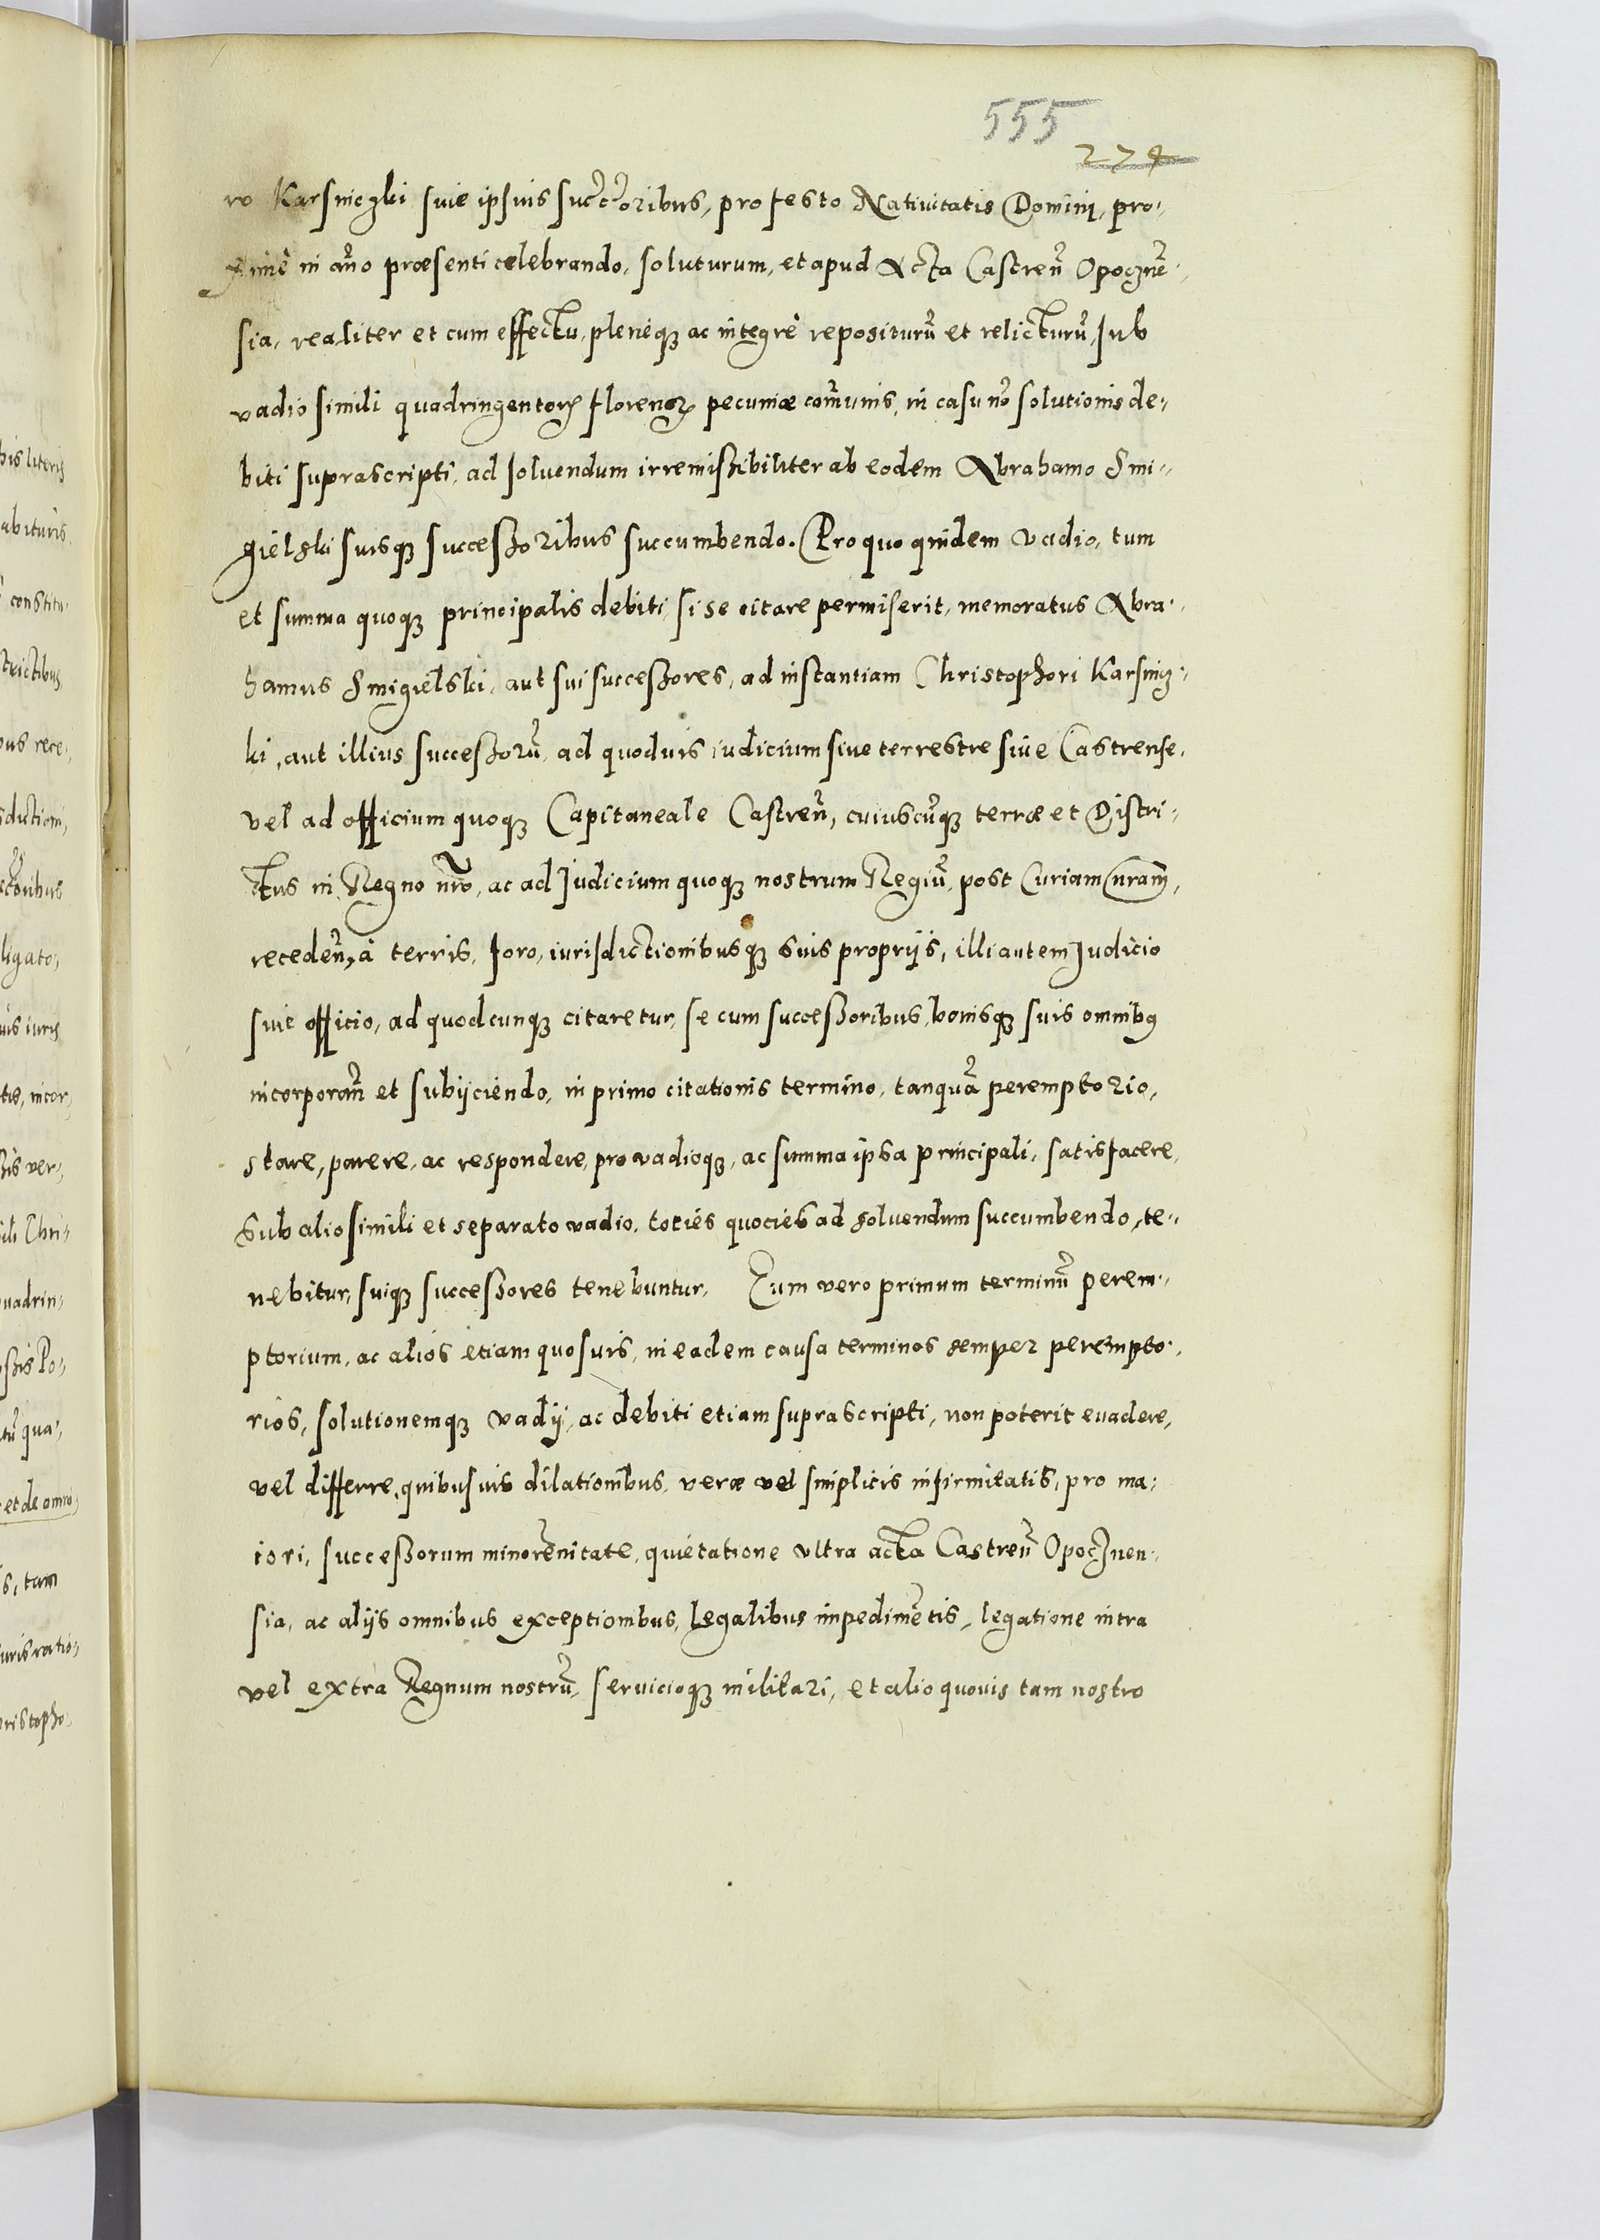 555
274
ro Karsniczki siue ipsius succ̃oribus, pro festo Natiuitatis Domini, pro-
xime in ãno præsenti celebrando, soluturum, et apud Acta Castreñ Opocznẽ-
sia, realiter et cum effectu, pleneqꝫ ac integrè repositurũ et relicturũ, sub
vadio simili quadringentorꝫ florenorꝫ pecuniæ com̃unis, in casu nõ solutionis de-
biti suprascripti, ad soluendum irremissibiliter ab eodem Abrahamo Smi-
gielski suisqꝫ successoribus succumbendo. Pro quo quidem vadio, tum
et summa quoqꝫ principalis debiti, si se citare permiserit, memoratus Abra-
hamus Smigielski, aut sui successores, ad instantiam Christophori Karsnicz-
ki, aut illius successorũ, ad quoduis iudicium siue terrestre siue Castrense,
vel ad officium quoqꝫ Capitaneale Castreñ, cuiuscũqꝫ terræ et Distri-
ctus in Regno nr̃o, ac ad Judicium quoqꝫ nostrum Regiũ, post Curiam nram̃,
recedeñ, à terris, foro, iurisdictionibusqꝫ suis proprijs, illi autem Judicio
siue officio, ad quodcunqꝫ citaretur, se cum successoribus, bonisqꝫ suis omnibꝫ
incorporañ et subijciendo, in primo citationis termino, tanquã peremptorio,
stare, parere, ac respondere, pro vadioqꝫ, ac summa ipsa principali, satisfacere,
sub alio simili et separato vadio, toties quocies ad soluendum succumbendo, te-
nebitur, suiqꝫ successores tenebuntur. Eum vero primum terminũ perem-
ptorium, ac alios etiam quosuis, in eadem causa terminos semper perempto-
rios, solutionemqꝫ vadij, ac debiti etiam suprascripti, non poterit euadere,
vel differre, quibusuis dilationibus, veræ vel simplicis infirmitatis, pro ma-
iori, successorum minorẽnitate, quietatione vltra acta Castreñ Opocznen-
sia, ac alijs omnibus exceptionibus, legalibus impedimẽtis, legatione intra
vel extra Regnum nostrũ, seruicioqꝫ militari, et alio quouis tam nostro